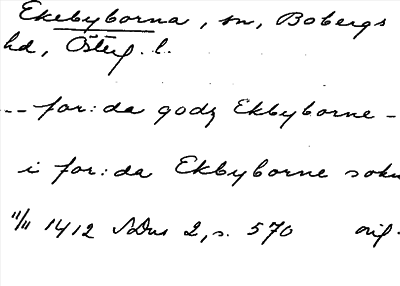 Ekebyborna, sn, Bobergs
hd, Österg. l.
-- for:da godz Ekbyborne -
i for:da Ekbyborne sokn
11/11 1412 SvDns 2, s. 570 orig.